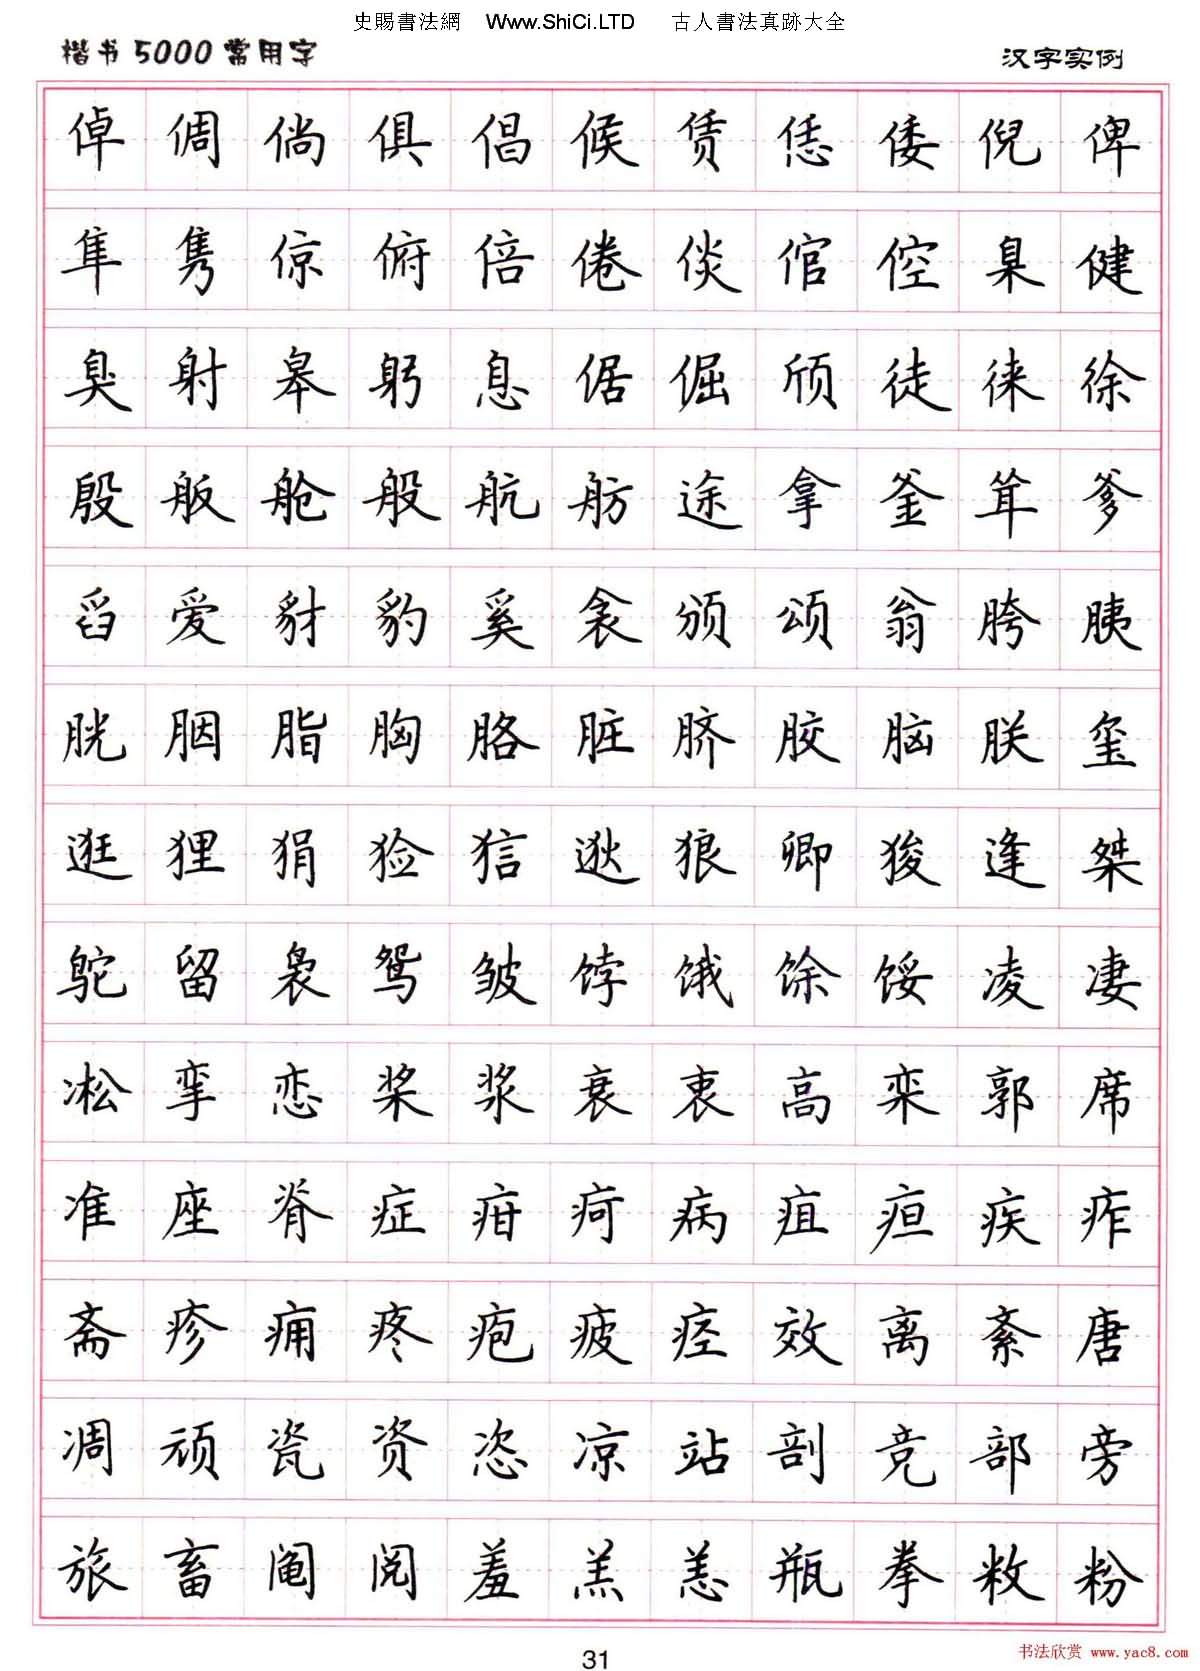 史賜書法網 Www.ShiCi.LTD 古人書法真跡大全
楷书5000常用字 汉字实例
倬 倜 倘 俱 倡 候 赁 恁 倭 倪 俾
隼 隽 倞 俯 倍 倦 倓 倌 倥 臬 健
臭 射 皋 躬 息 倨 倔 颀 徒 徕 徐
殷 舨 舱 般 航 舫 途 拿 釜 耸 爹
舀 爱 豺 豹 奚 衾 颁 颂 翁 胯 胰
胱 胭 脂 胸 胳 脏 脐 胶 脑 朕 玺
逛 狸 狷 猃 狺 逖 狼 卿 狻 逢 桀
鸵 留 袅 鸳 皱 饽 饿 馀 馁 凌 凄
凇 挛 恋 桨 浆 衰 衷 高 栾 郭 席
准 座 脊 症 疳 疴 病 疽 疸 疾 痄
斋 疹 痈 疼 疱 疲 痉 效 离 紊 唐
凋 顽 瓷 资 恣 凉 站 剖 竞 部 旁
旅 畜 阄 阅 羞 羔 恙 瓶 拳 敉 粉
31
书法欣赏 www.yac8.com